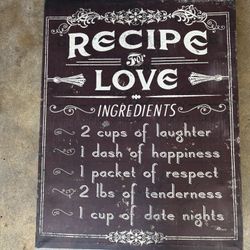 RECIPE
FOR
LOVE
INGREDIENTS
2 cups of laughter
1 dash of happiness
1 packet of respect
2 lbs of tenderness
1 cup of date nights